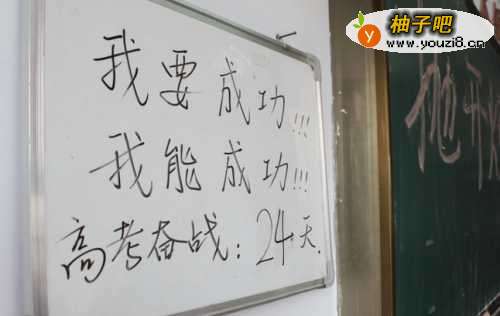 柚子吧
www.youzi8.cn
我要成功!!!
我能成功!!!
高考奋战：24天.